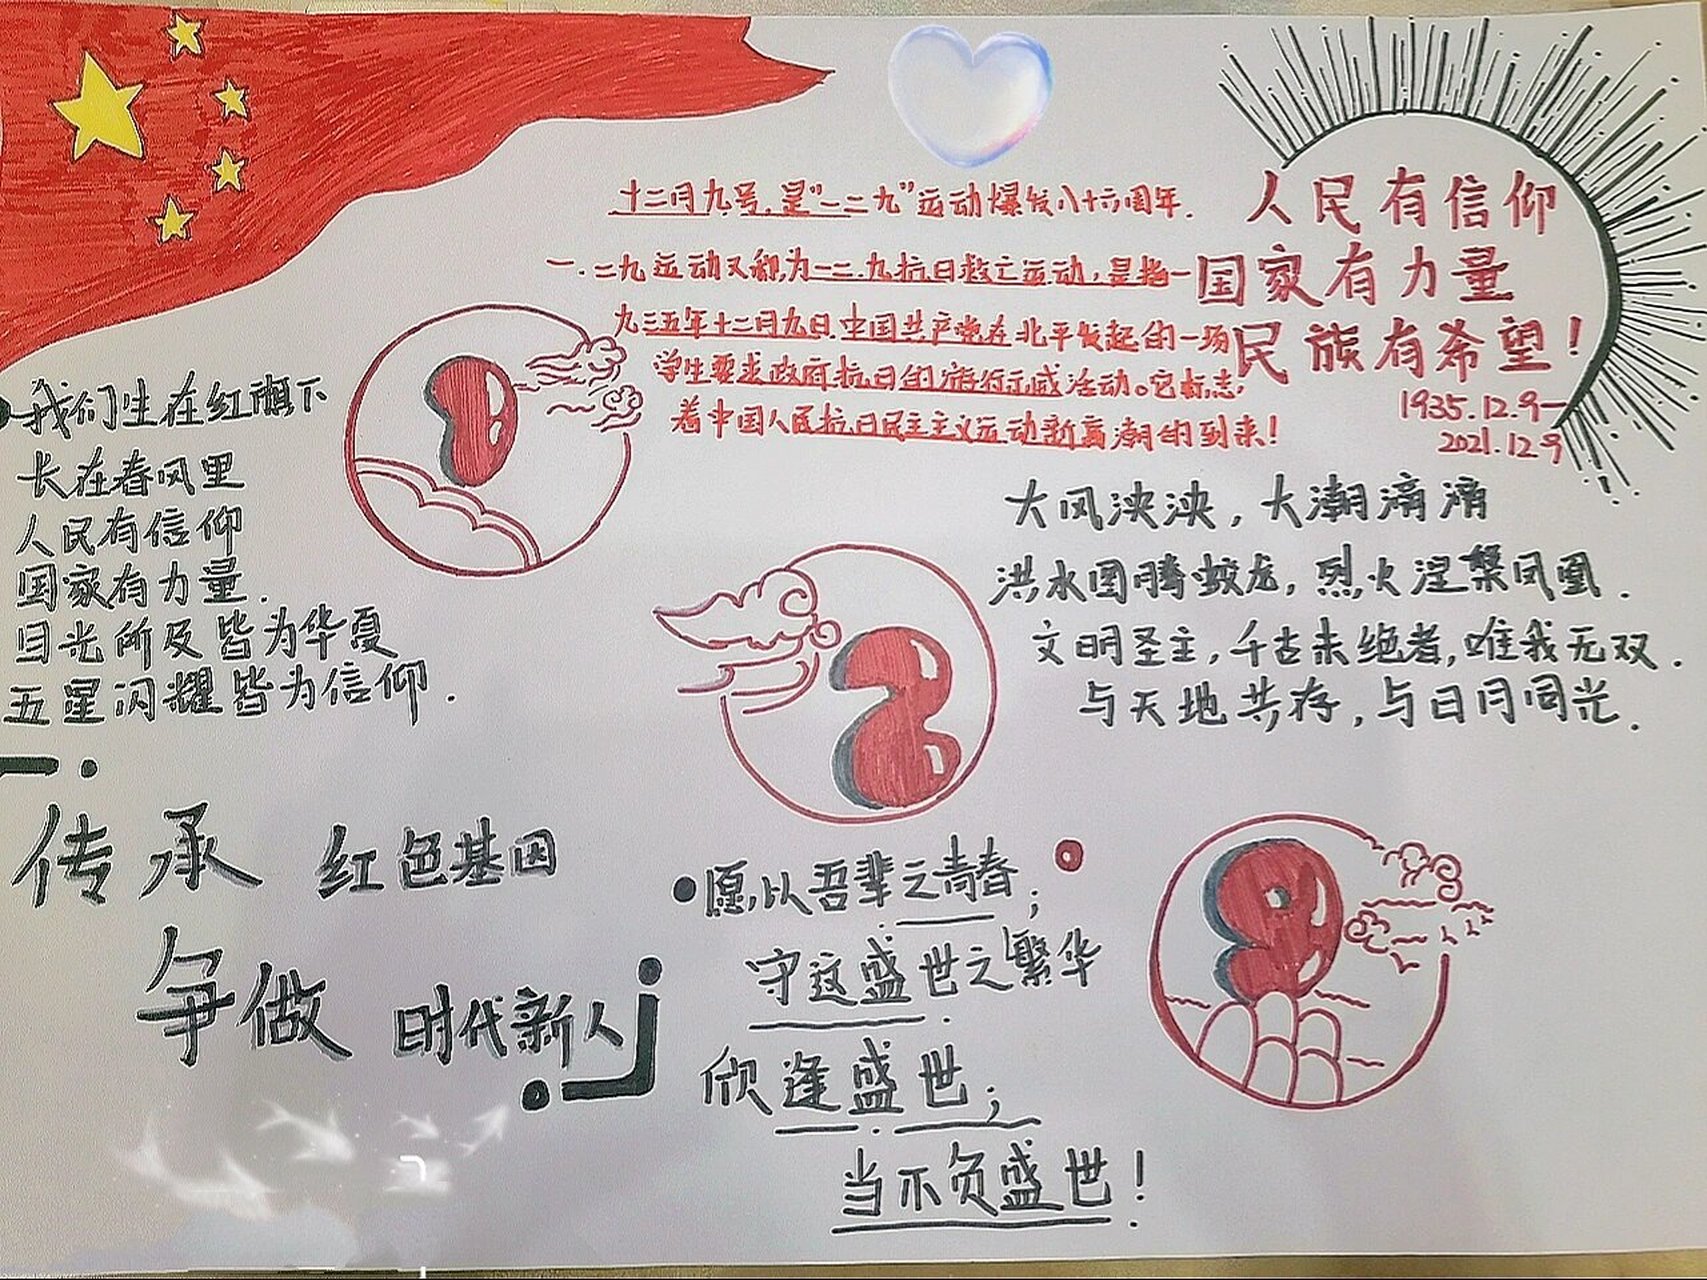 十二月九号,是“一二九”运动爆发八十六周年.
一.二九运动又称为一二.九抗日救亡运动,是指一
九三五年十二月九日,中国共产党在北平发起的一场
学生要求政府抗日的游行示威活动。它标志
着中国人民抗日民主主义运动新高潮的到来!
人民有信仰
国家有力量
民族有希望!
1935.12.9—
2021.12.9
我们生在红旗下
长在春风里
人民有信仰
国家有力量.
目光所及皆为华夏
五星闪耀皆为信仰.
1
2
9
大风泱泱,大潮滂滂
洪水图腾蛟龙,烈火涅槃凤凰.
文明圣主,千古未绝者,唯我无双.
与天地共存,与日月同光.
传承 红色基因
争做 时代新人
愿以吾辈之青春;
守这盛世之繁华
欣逢盛世;
当不负盛世!